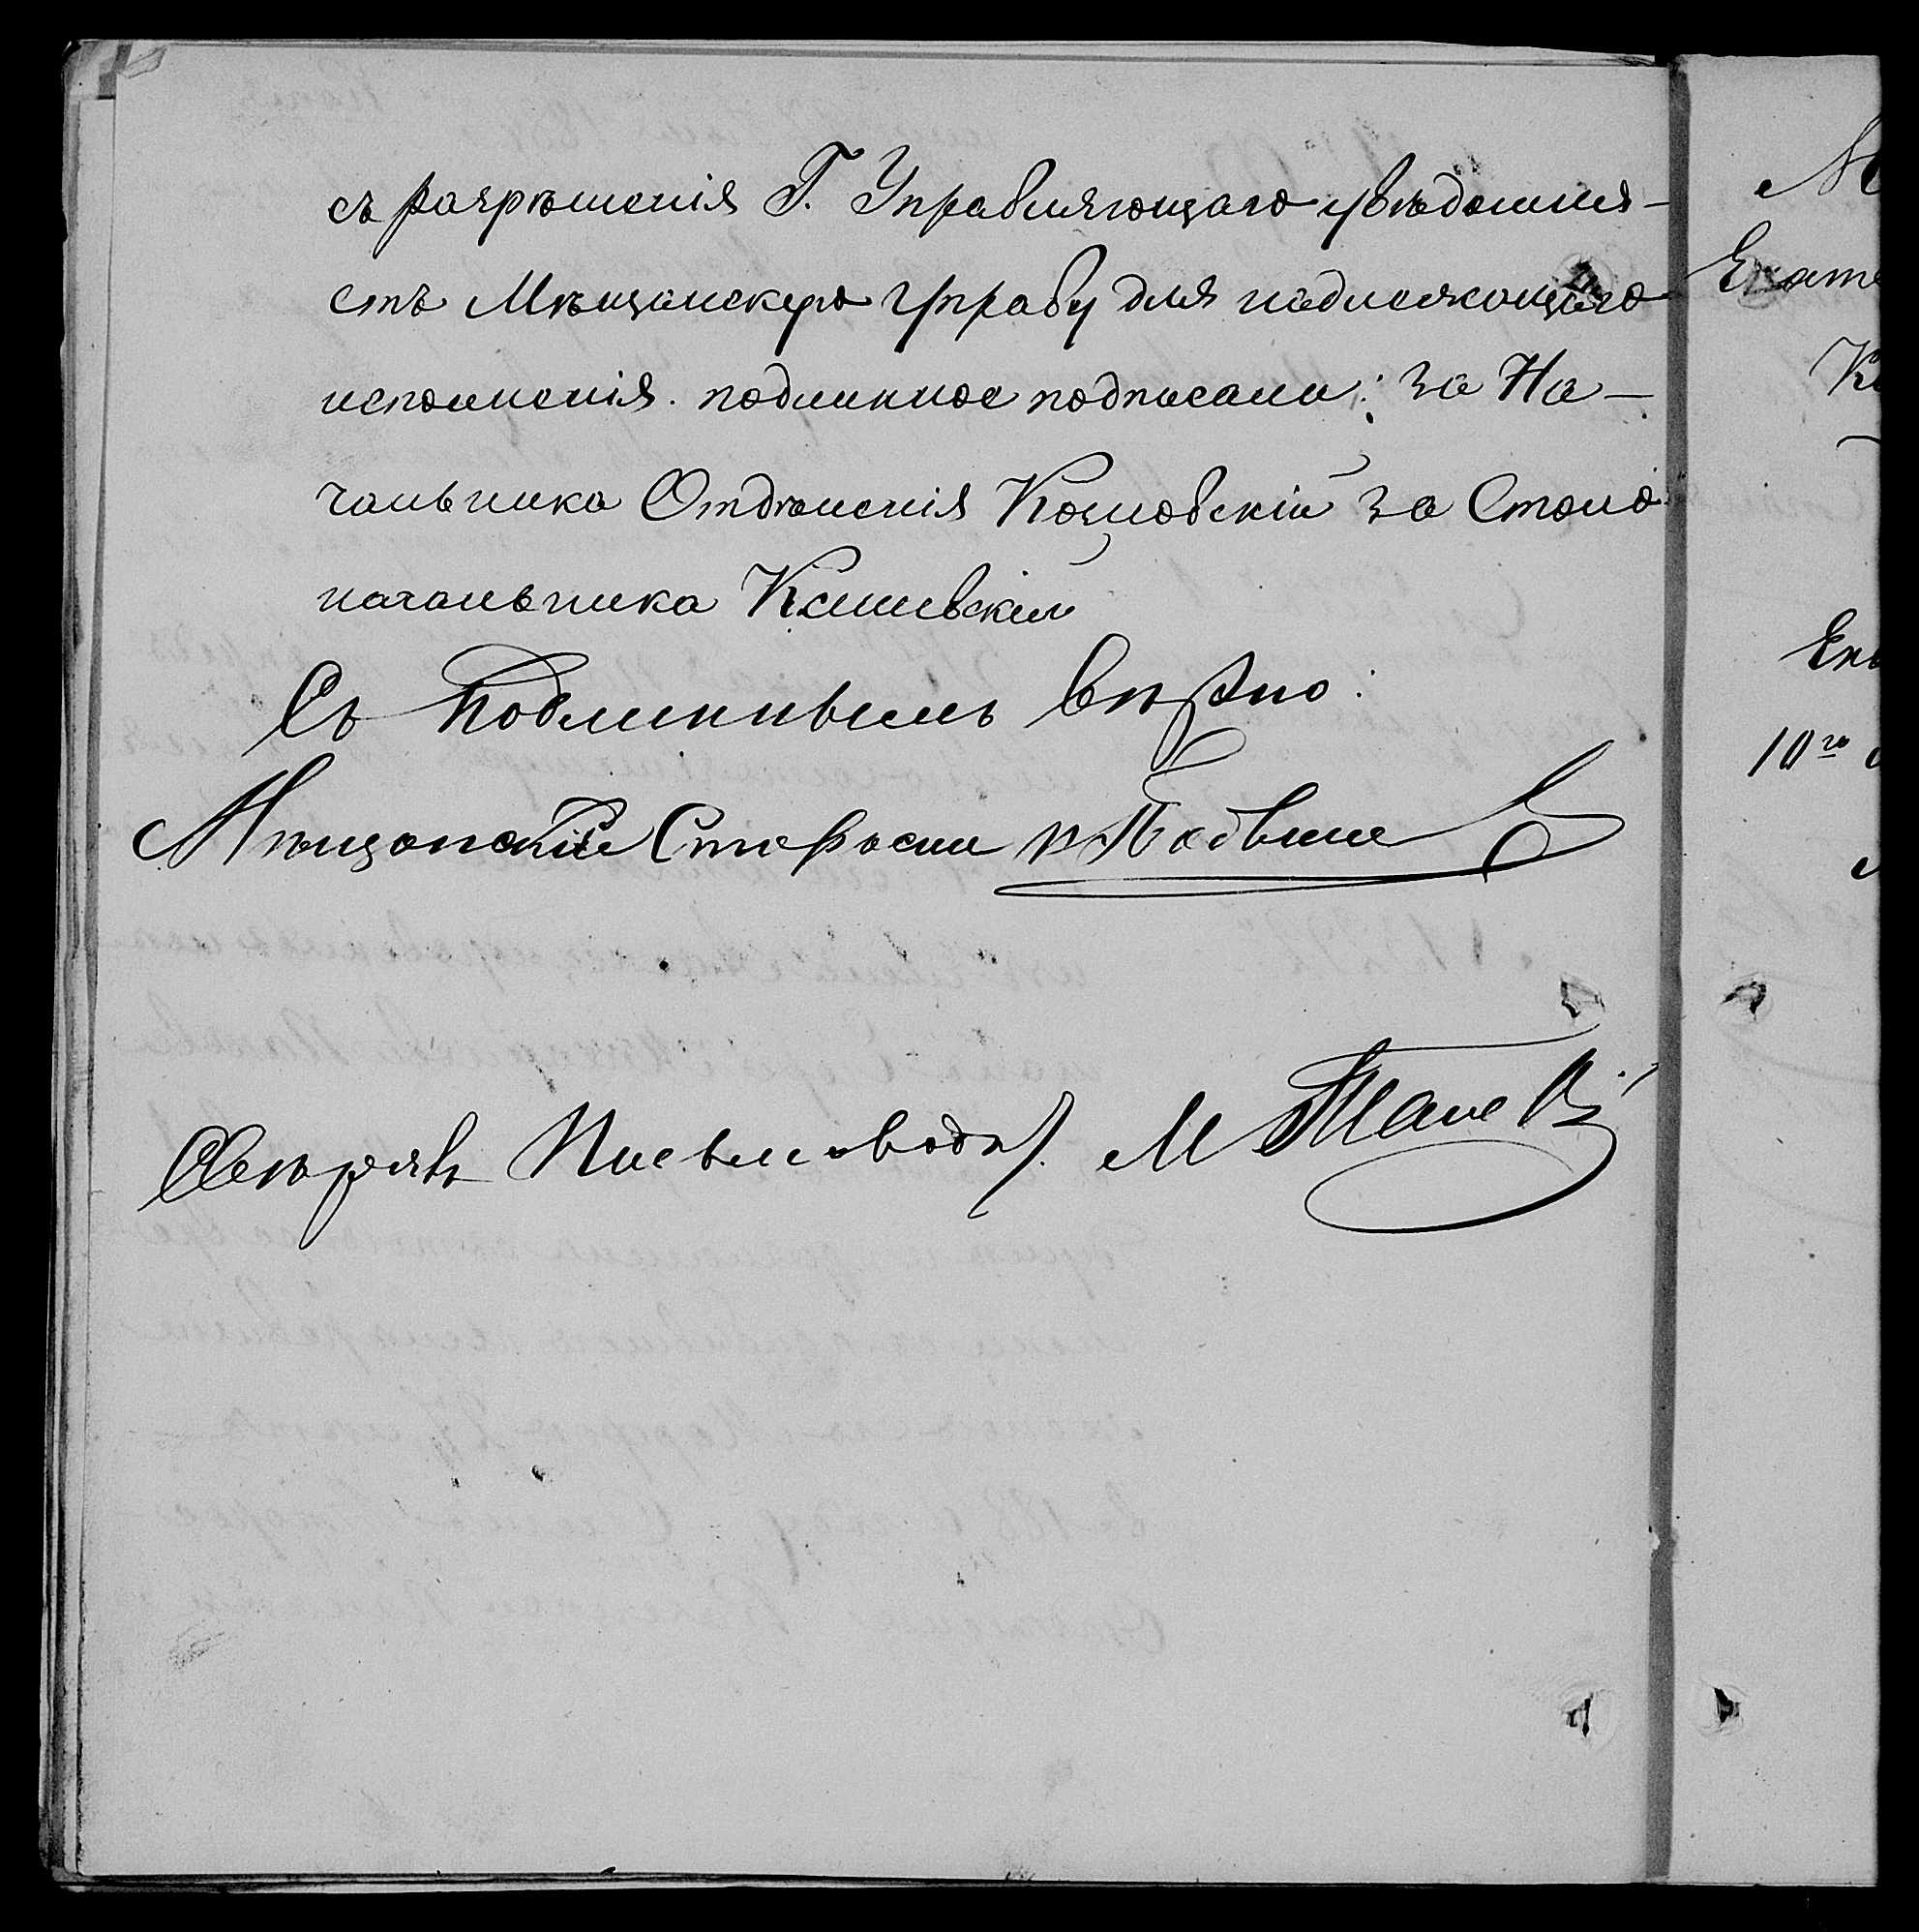 съ разрѣшенія Г. Управляющаго увѣдомля-
етъ Мѣщанскую Управу для надлежащаго
исполненія. подлинное подписали: За На-
чальника Отдѣленія Козловскій за Столо
начальника
Съ подлиннымъ вѣрно:
Мѣщанскій Староста
Свѣрялъ Письмоводт. М
М
Екате
Ко
Ека
10го